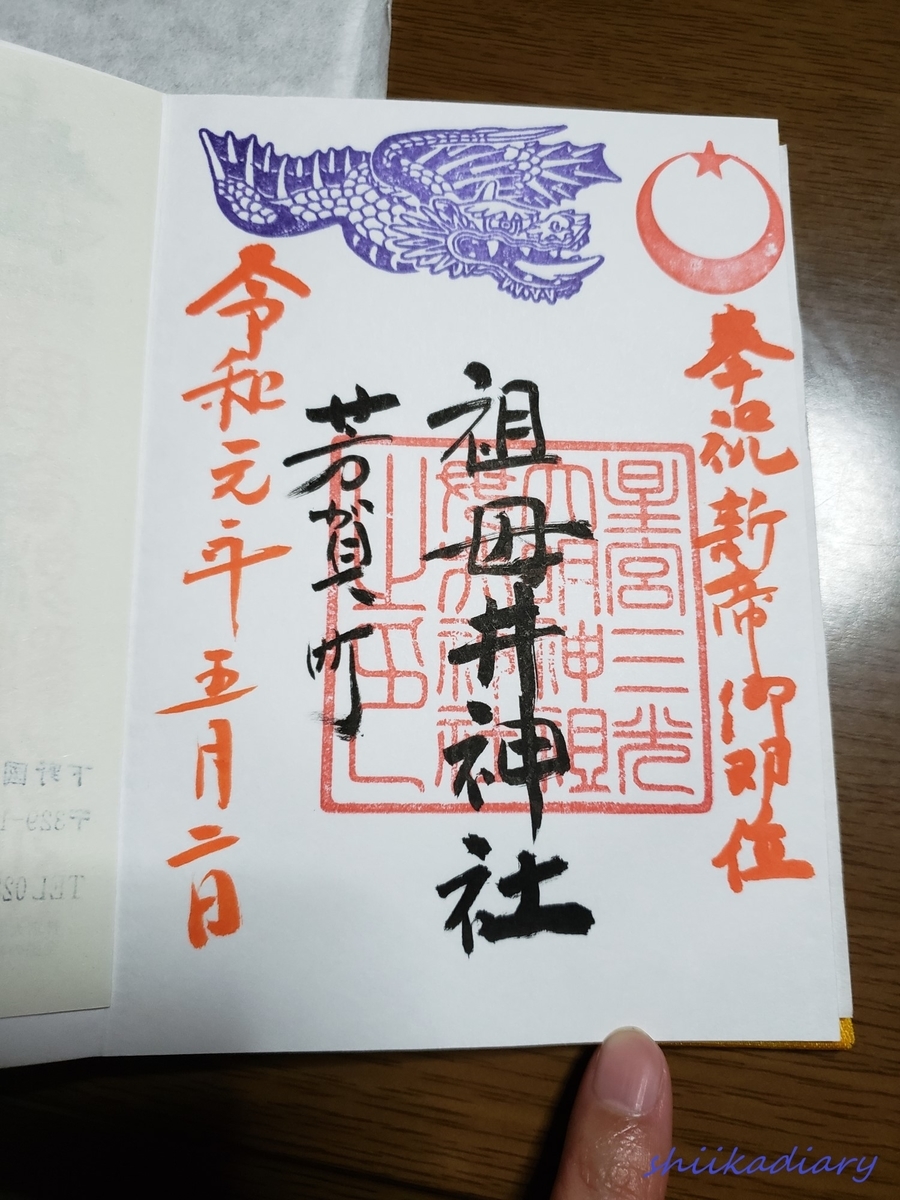 奉祝新帝御即位
祖母井神社
芳賀町
令和元年五月二日
星宮三光
大明神祖
之印
下野國
〒329-1
TEL 02
shiikadiary